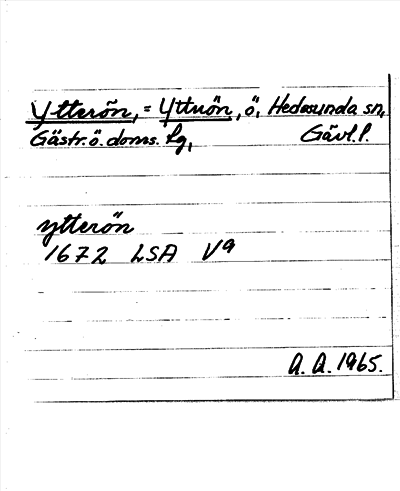 Ytterön, = Yttrön, ö, Hedesunda sn,
Gästr. ö. doms. lg, Gävl. l.
ytterön
1672 LSA V9
A. A. 1965.